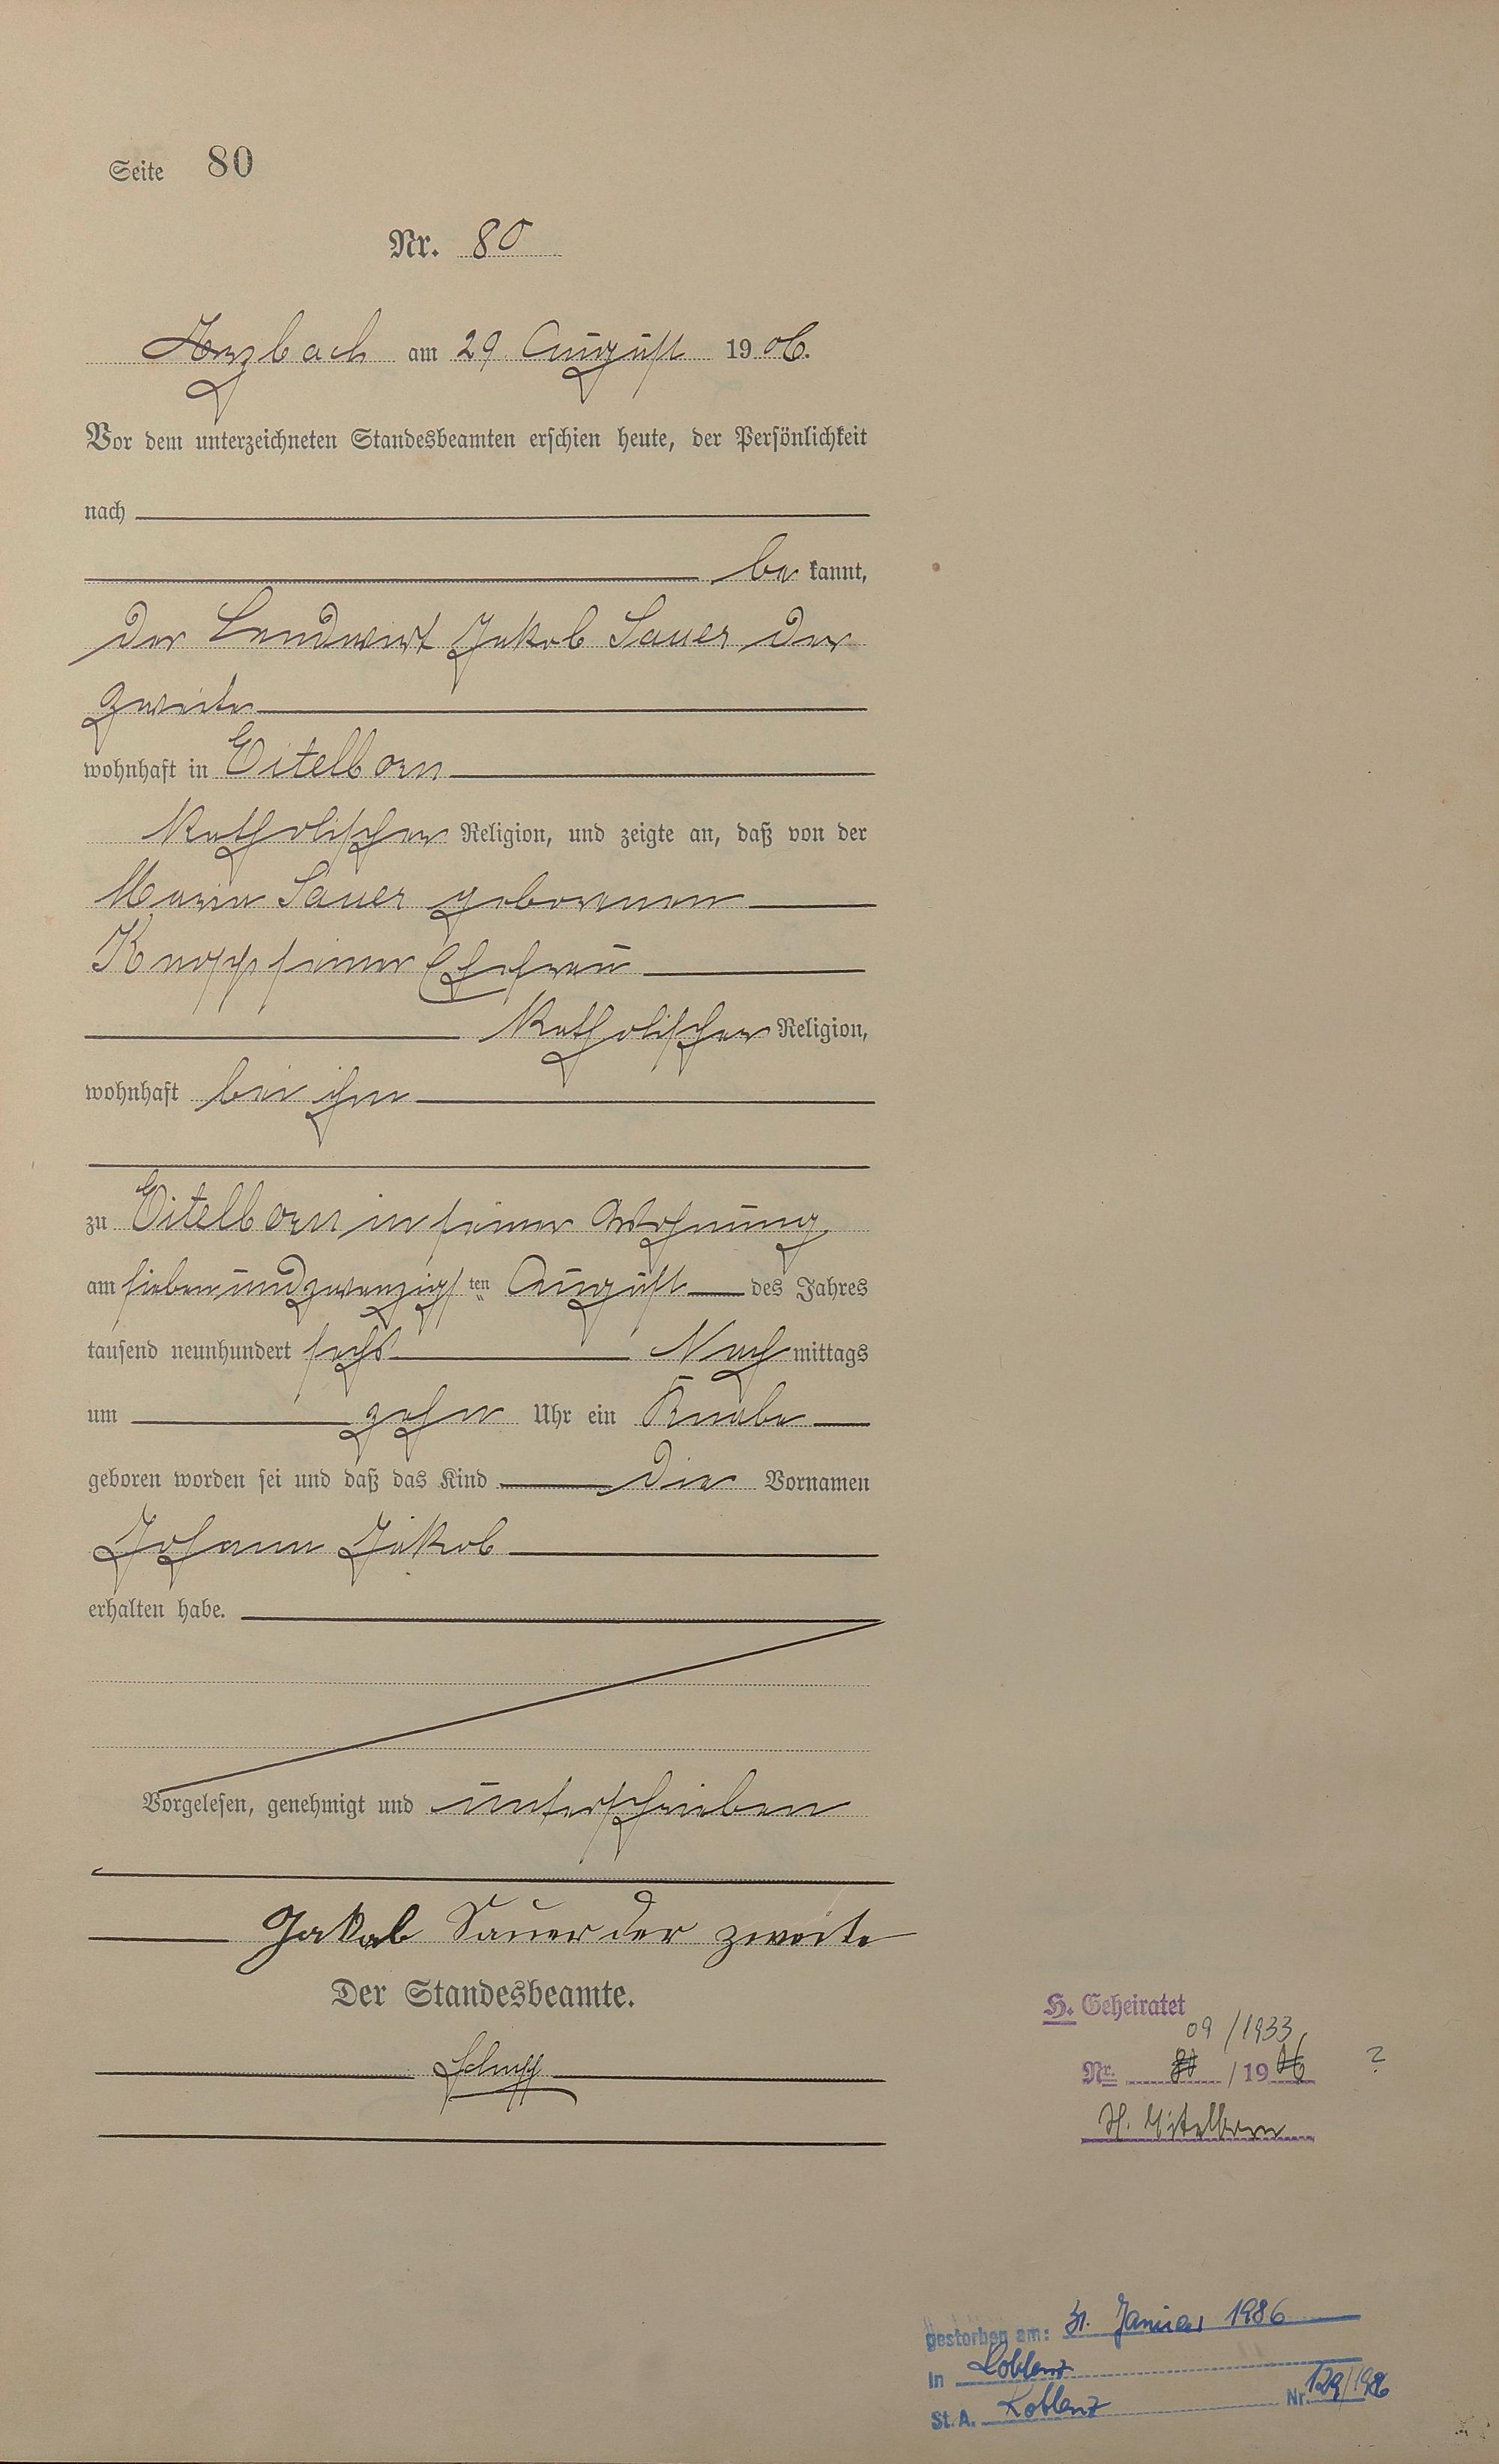 Seite 80
Nr. 80
Arzbach am 29. August 19 06.
Vor dem unterzeichneten Standesbeamten erschien heute, der Persönlichkeit
nach
be kannt,
der Landwirt Jakob Sauer der
zweite
wohnhaft in Eitelborn
katholischer Religion, und zeigte an, daß von der
Maria Sauer geborenen
Knopp seiner Ehefrau
katholischer Religion,
wohnhaft bei ihm
zu Eitelborn in seiner Wohnung
am siebenundzwanzigsten August des Jahres
tausend neunhundert sechs Nach mittags
um zehn Uhr ein Knabe
geboren worden sei und daß das Kind die Vornamen
Johann Jakob
erhalten habe.
Vorgelesen, genehmigt und unterschrieben
Jakob Sauer der zweite
Der Standesbeamte.
H. Geheiratet
09 / 1933
Nr. 80 / 19 06 ?
Eitelborn
gestorben am: 31. Januar 1986
In Koblenz
St. A. Koblenz Nr. 129/1986